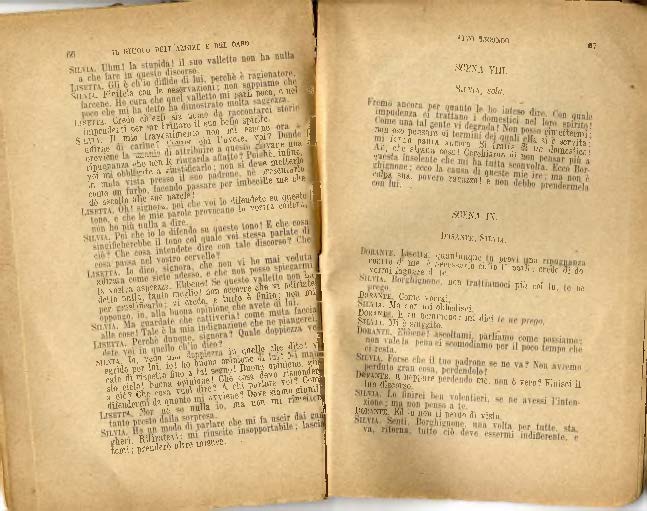 66 IL GIUOCO DELL'AMORE E DEL CASO
SILVIA. Uhm! la stupida! il suo valletto non ha nulla
a che fare in questo discorso.
LISETTA. Gli è ch'io diffido di lui, perchè è ragionatore.
SILVIA. Finitela con le osservazioni; non sappiamo che
farcene. Ho cura che quel valletto mi parli poco, e nel
poco che mi ha detto ha dimostrato molta saggezza.
LISETTA. Credo ch'egli sia uomo da raccontarvi storie
per farvi il suo bello spirito.
SILVIA. Il mio travestimento non mi espone ora a
udirne di carine? Donde
previene la smania di attribuire a questo giovane una
ripugnanza che non lo riguarda affatto? Poichè, infine,
voi mi obbligate a giustificarlo; non si deve metterlo
in mala vista presso il suo padrone, nè presentarlo
come un furbo, facendo passare per imbecille me che
dò ascolto alle sue parole!
LISETTA. Oh! signora, poi che voi lo difendete su questo
tono, e che le mie parole provocano la vostra collera,
non ho più nulla a dire.
SILVIA. Poi che io lo difendo su questo tono! E che cosa
significherebbe il tono col quale voi stessa parlate di
ciò? Che cosa intendete dire con tale discorso? Che
cosa passa nel vostro cervello?
LISETTA. Io dico, signora, che non vi ho mai veduta
come siete adesso, e che non posso spiegarmi
la vostra asprezza. Ebbene! Se questo valletto non ha
detto nulla, tanto meglio! non occorre che vi adiriate
per giustificarlo; vi credo, e tutto è finito; non mi
oppongo, io, alla buona opinione che avete di lui.
SILVIA. Ma guardate che cattiveria! come muta faccia
alle cose! Tale è la mia indignazione che ne piangerei.
LISETTA. Perchè dunque, signora? Quale doppiezza ve-
dete voi in quello ch'io dico?
SILVIA. Io, vedo una doppiezza in quello che dite!
per lui, io! ho buona opinione di lui!
di rispetto fino a tal segno! Buona opinione,
buona opinione! Che cosa devo rispondere
a ciò? Che cosa vuol dire? A chi parlate voi? Come
difendermi da quanto mi avviene? Dove siamo giunti?
LISETTA. Non ne so nulla io, ma non mi rimetterò
tanto presto dalla sorpresa.
SILVIA. Ha un modo di parlare che mi fa uscir dai gan-
gheri. Ritiratevi; mi riuscite insopportabile; lascia-
temi; prenderò altre misure.
ATTO SECONDO 67
SCENA VIII.
SILVIA, sola.
Fremo ancora per quanto le ho inteso dire. Con quale
impudenza ci trattano i domestici nel loro spirito!
Come una tal gente vi degrada! Non posso rimettermi;
non oso pensare ai termini dei quali ella si è servita;
mi fanno paura ancora. Si tratta di un domestico!
Ah, che strana cosa! Cerchiamo di non pensar più a
questa insolente che mi ha tutta sconvolta. Ecco Bor-
ghignone; ecco la causa di queste mie ire; ma non è
colpa sua, povero ragazzo! e non debbo prendermela
con lui.
SCENA IX.
DORANTE, SILVIA.
DORANTE. Lisetta, quantunque tu provi una ripugnanza
contro di me, è necessario ch'io ti parli; credo di do-
vermi lagnare di te.
SILVIA. Borghignone, non trattiamoci più col tu, te ne
prego.
DORANTE. Come vorrai.
SILVIA. Ma non mi obbedisci.
DORANTE. E tu nemmeno: mi dici te ne prego.
SILVIA. Mi è sfuggito.
DORANTE. Ebbene! ascoltami, parliamo come possiamo;
non vale la pena ci scomodiamo per il poco tempo che
ci resta.
SILVIA. Forse che il tuo padrone se ne va? Non avremo
perduto gran cosa, perdendolo!
DORANTE. E neppure perdendo me, non è vero? Finisci il
tuo discorso.
SILVIA. Lo finirei ben volentieri, se ne avessi l'inten-
zione; ma non penso a te.
DORANTE. Ed io non ti perdo di vista.
SILVIA. Senti, Borghignone, una volta per tutte, sta,
va, ritorna, tutto ciò deve essermi indifferente, e